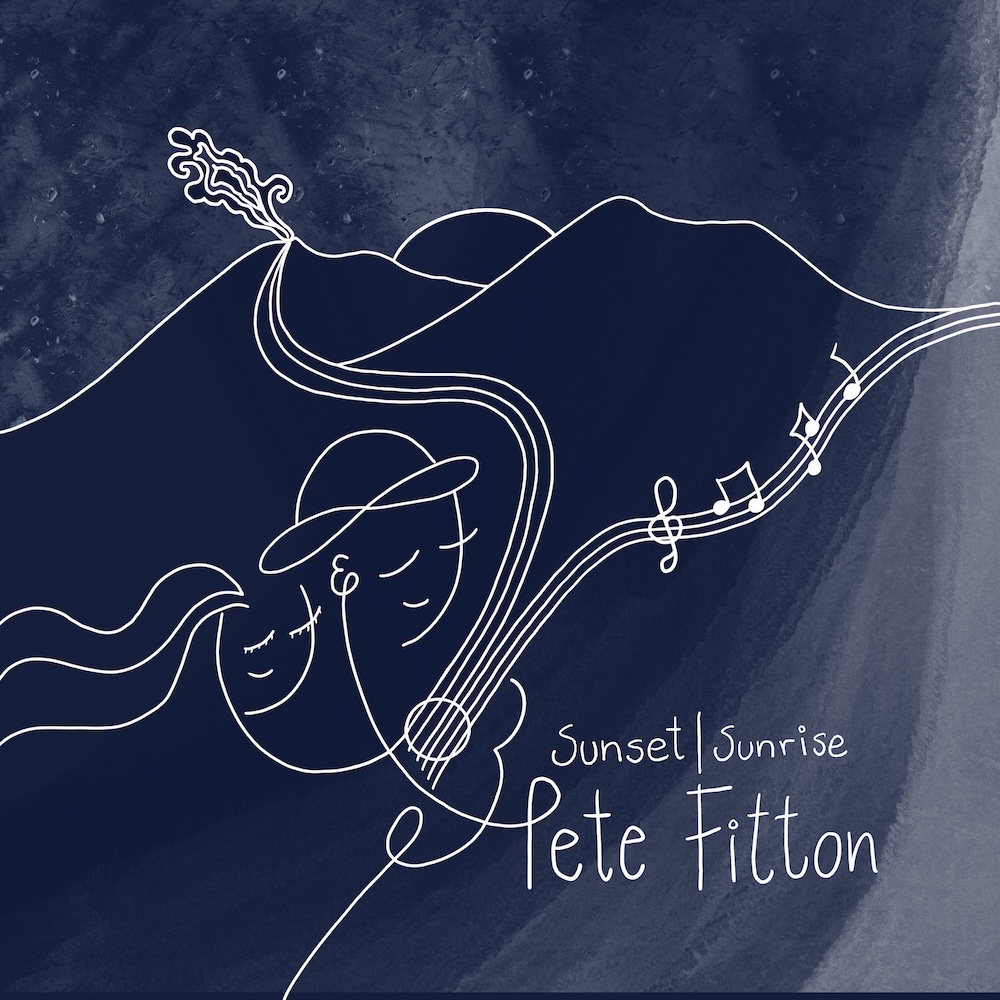 Sunset|Sunrise
Pete Fitton